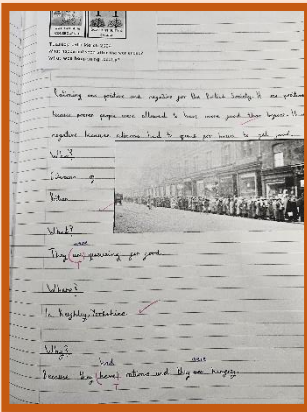 Rationing was positive and negative for the British Society. It was positive
because poorer people were allowed to have more food than before. It
negative because had to queue for hours to get food.
Who?
Women
What?
were
They are queueing for food
Where?
In Keighley, Yorkshire
Why?
had were
Because they have rations and they are hungry.